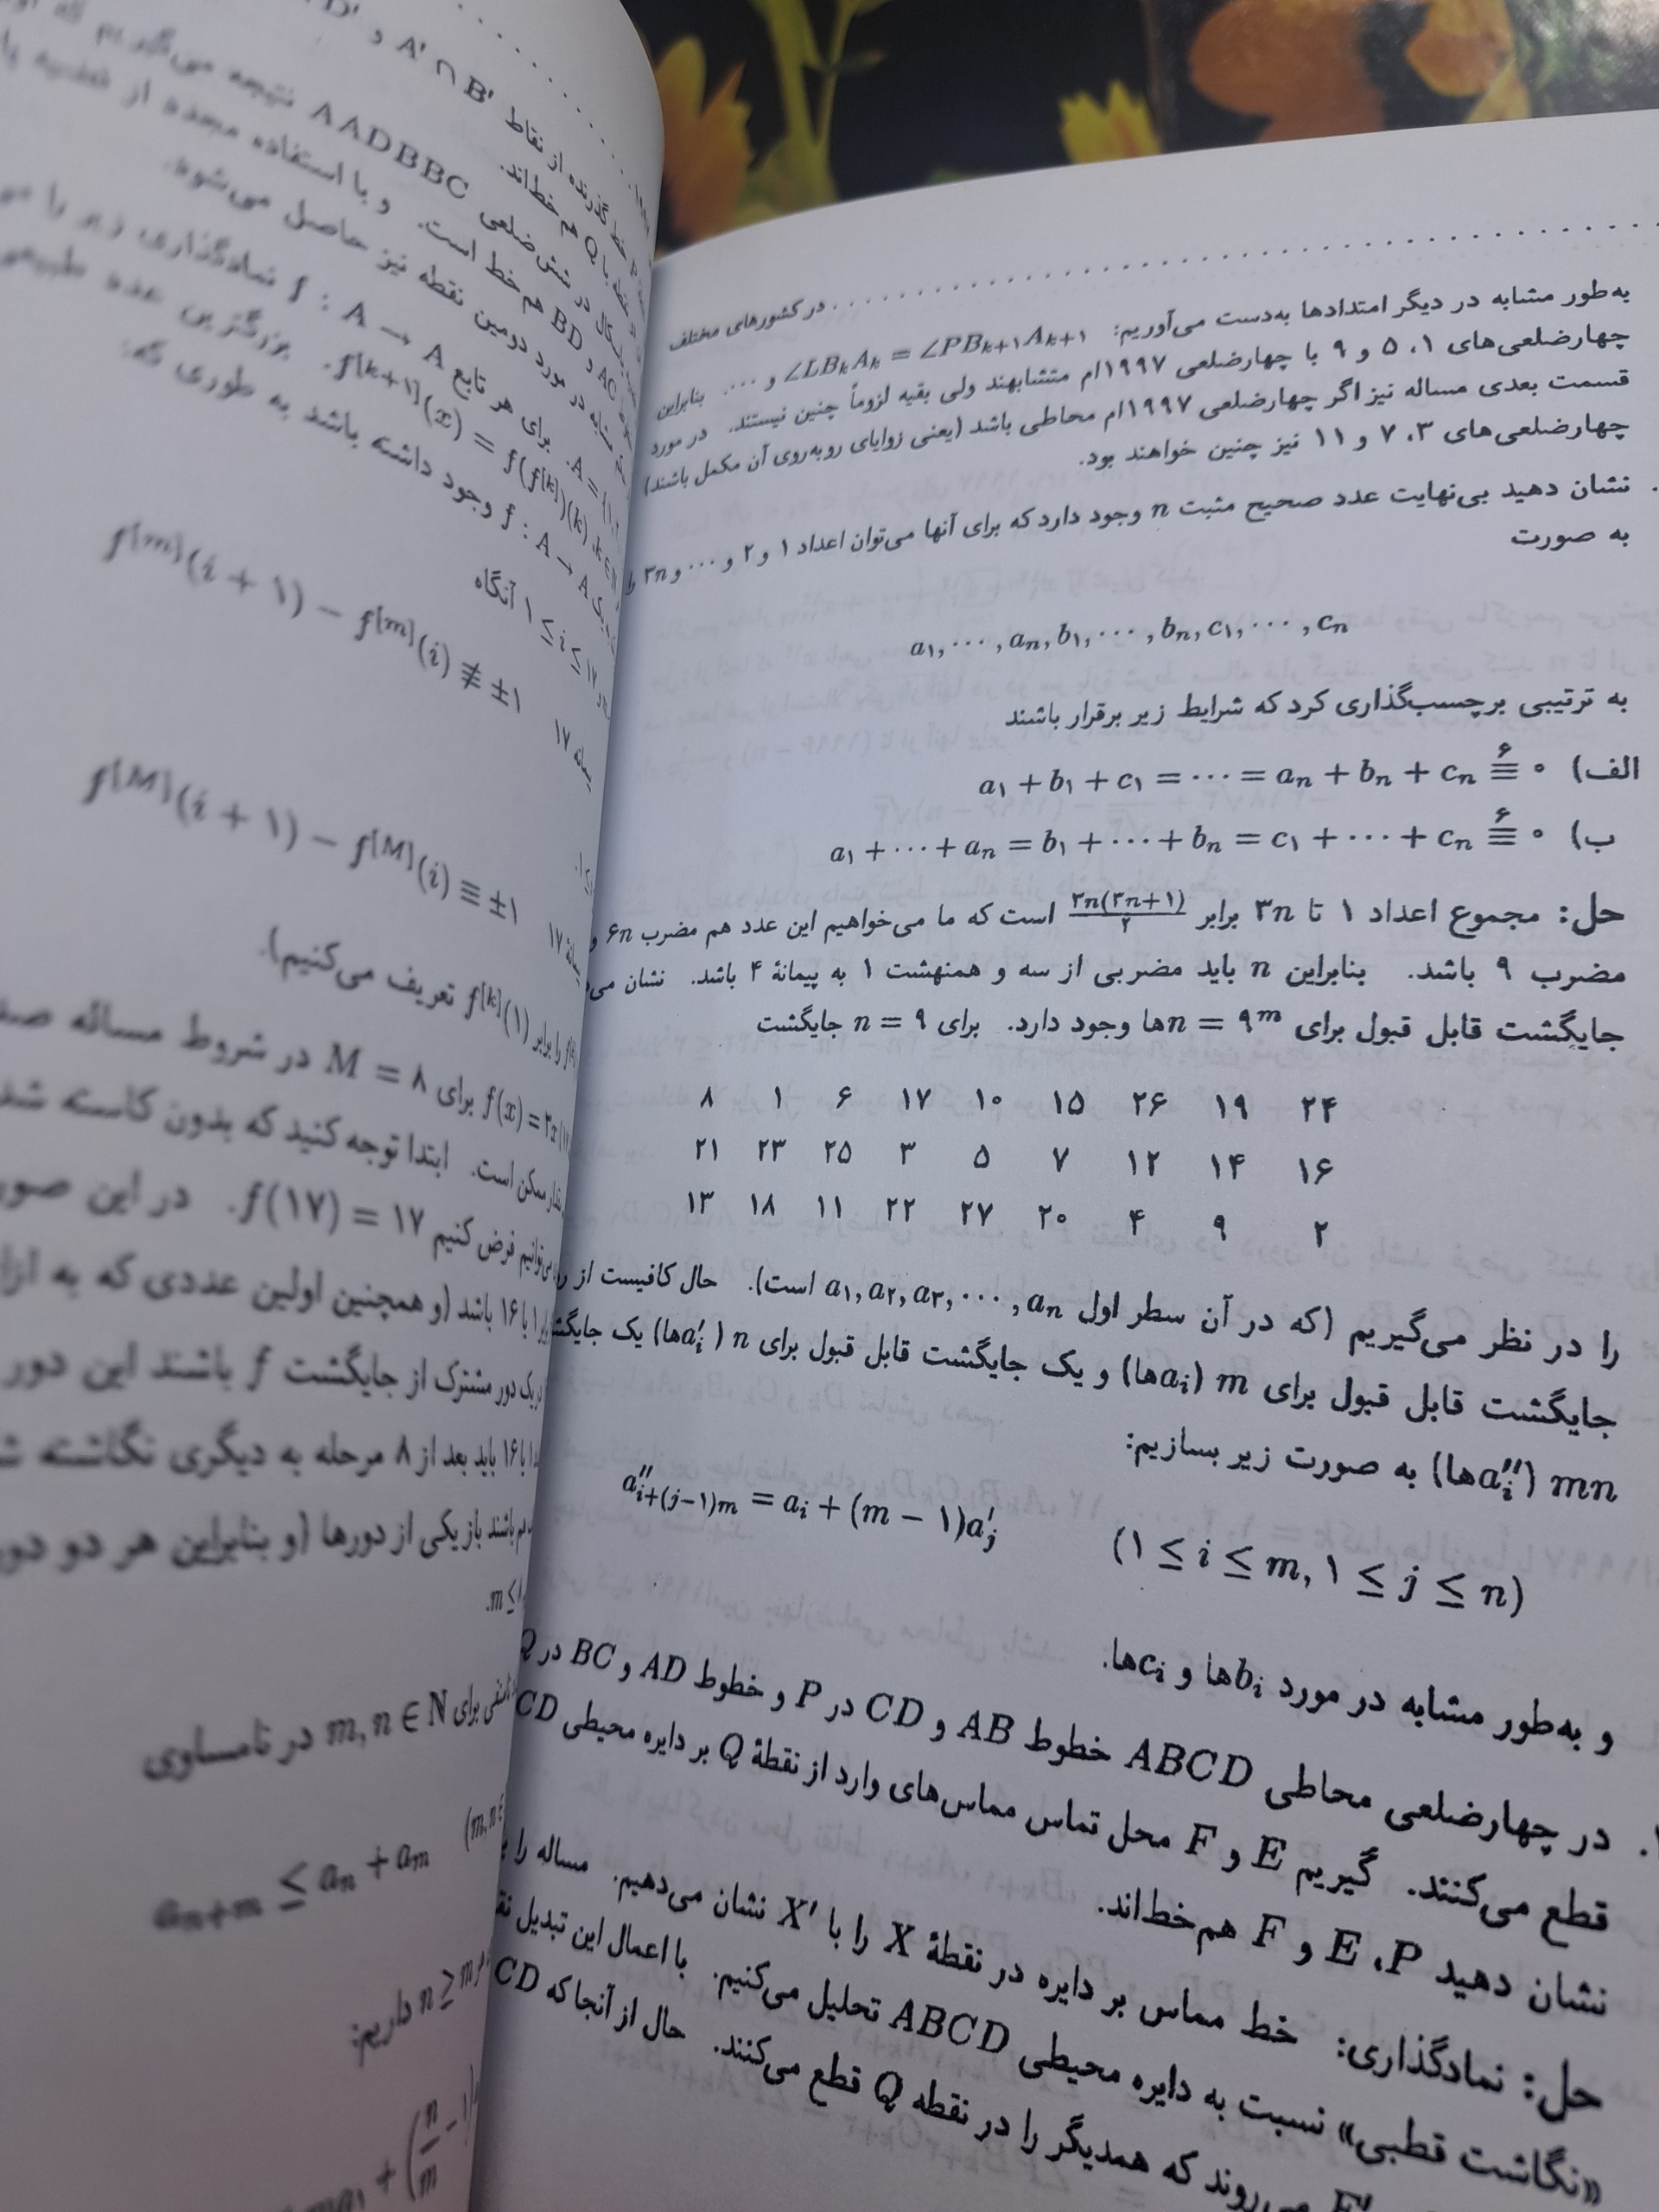 در کشورهای مختلف
به‌طور مشابه در دیگر امتدادها به‌دست می‌آوریم: ∠LBₖAₖ = ∠PBₖ₊₁Aₖ₊₁ و ⋯. بنابراین
چهارضلعی‌های ۱، ۵ و ۹ با چهارضلعی ۱۹۹۷ام متشابهند ولی بقیه لزوماً چنین نیستند. در مورد
قسمت بعدی مساله نیز اگر چهارضلعی ۱۹۹۷ام محاطی باشد (یعنی زوایای روبه‌روی آن مکمل باشند)
چهارضلعی‌های ۳، ۷ و ۱۱ نیز چنین خواهند بود.
نشان دهید بی‌نهایت عدد صحیح مثبت n وجود دارد که برای آنها می‌توان اعداد ۱ و ۲ و ⋯ و ۳n را
به صورت
a₁, ⋯ , aₙ, b₁, ⋯ , bₙ, c₁, ⋯ , cₙ
به ترتیبی برچسب‌گذاری کرد که شرایط زیر برقرار باشند
الف) a₁ + b₁ + c₁ = ⋯ = aₙ + bₙ + cₙ ≡⁶ ۰
ب) a₁ + ⋯ + aₙ = b₁ + ⋯ + bₙ = c₁ + ⋯ + cₙ ≡⁶ ۰
حل: مجموع اعداد ۱ تا ۳n برابر ۳n(۳n+۱)/۲ است که ما می‌خواهیم این عدد هم مضرب ۶n و
مضرب ۹ باشد. بنابراین n باید مضربی از سه و همنهشت ۱ به پیمانهٔ ۴ باشد. نشان
جایگشت قابل قبول برای n = ۹ᵐها وجود دارد. برای n = ۹ جایگشت
۸ ۱ ۶ ۱۷ ۱۰ ۱۵ ۲۶ ۱۹ ۲۴
۲۱ ۲۳ ۲۵ ۳ ۵ ۷ ۱۲ ۱۴ ۱۶
۱۳ ۱۸ ۱۱ ۲۲ ۲۷ ۲۰ ۴ ۹ ۲
را در نظر می‌گیریم (که در آن سطر اول a₁, a₂, a₃, ⋯ , aₙ است). حال کافیست از
جایگشت قابل قبول برای m (aᵢها) و یک جایگشت قابل قبول برای n (a′ᵢها) یک
mn (a″ᵢها) به صورت زیر بسازیم:
a″ᵢ₊₍ⱼ₋₁₎ₘ = aᵢ + (m − ۱)a′ⱼ (۱ ≤ i ≤ m, ۱ ≤ j ≤ n)
و به‌طور مشابه در مورد bᵢها و cᵢها.
در چهارضلعی محاطی ABCD خطوط AB و CD در P و خطوط AD و BC در Q
قطع می‌کنند. گیریم E و F محل تماس مماس‌های وارد از نقطهٔ Q بر دایره محیطی CD
نشان دهید P، E و F هم‌خط‌اند.
حل: نمادگذاری: خط مماس بر دایره در نقطهٔ X را با X′ نشان می‌دهیم. مساله را
«نگاشت قطبی» نسبت به دایره محیطی ABCD تحلیل می‌کنیم. با اعمال این تبدیل
می‌روند که همدیگر را در نقطه Q قطع می‌کنند. حال از آنجا که CD
خط گذرنده از نقاط A′ ∩ B′ و
با Q هم‌خط‌اند.
در شش‌ضلعی AADBBC نتیجه می‌گیریم که
AC و BD هم‌خط است. و با استفاده مجدد از قضیه
در مورد دومین نقطه نیز حاصل می‌شود.
برای هر تابع f : A → A نمادگذاری زیر را
f[k+1](x) = f(f[k])(k). بزرگترین عدد طبیعی
f : A → A وجود داشته باشد به طوری که:
۱ ≤ i ≤ ۱۷ آنگاه
f[m](i + ۱) − f[m](i) ≢ ±۱ ۱۷
f[M](i + ۱) − f[M](i) ≡ ±۱ ۱۷
را برابر f[k](۱) تعریف می‌کنیم).
برای M = ۸ در شروط مساله
ممکن است. ابتدا توجه کنید که بدون کاسته
می‌توانیم فرض کنیم f(۱۷) = ۱۷. در این
۱ یا ۱۶ باشد (و همچنین اولین عددی که به
یک دور مشترک از جایگشت f باشند این دور
یا ۱۶ باید بعد از ۸ مرحله به دیگری نگاشته
باشند باز یکی از دورها (و بنابراین هر دو
برای m, n ∈ N در نامساوی
aₙ₊ₘ ≤ aₙ + aₘ
داریم: